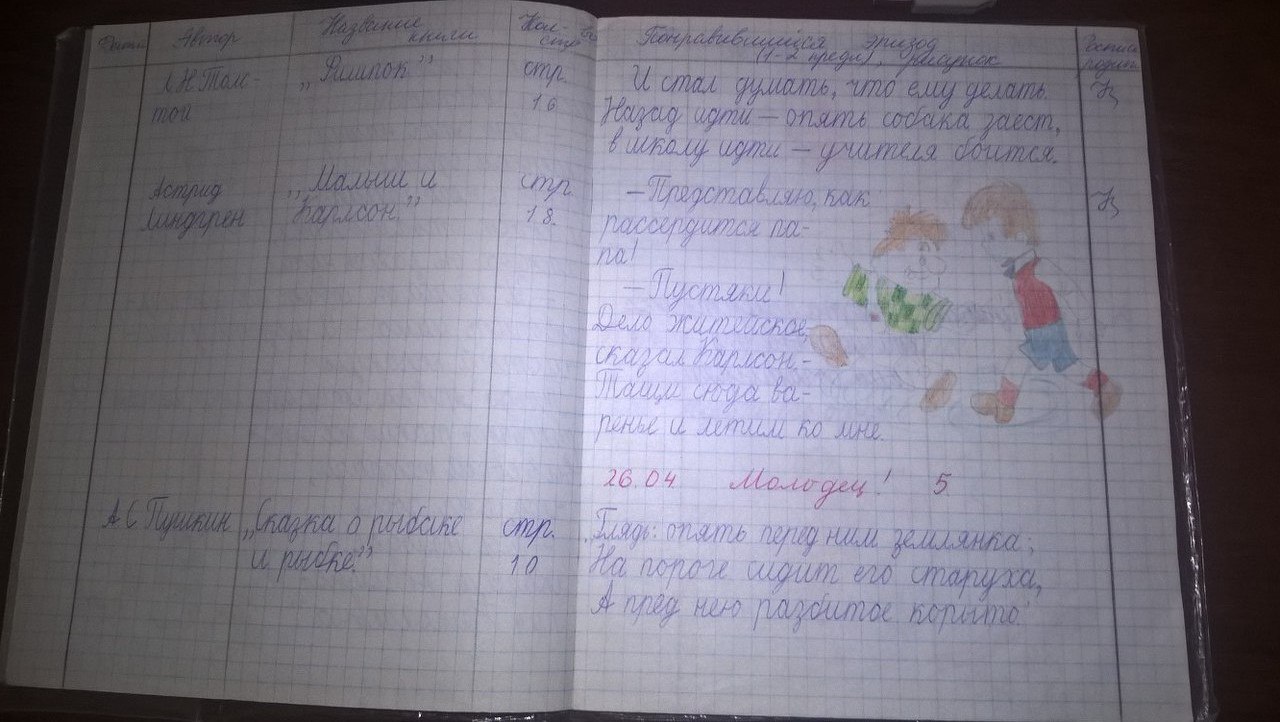 Дата Автор Название книги Кол-во стр Понравившийся эпизод (1-2 предл), рисунок Роспись родит.
Л Н Толс- „Филипок” стр. И стал думать, что ему делать.
той 16 Назад идти – опять собака заест,
в школу идти – учителя боится.
Астрид „Малыш и стр. – Представляю, как
Линдгрен Карлсон.” 18. рассердится па-
па!
– Пустяки!
Дело житейское,
сказал Карлсон. –
Тащи сюда ва-
ренье и летим ко мне.
26.04 Молодец! 5
А С Пушкин „Сказка о рыбаке стр. Глядь: опять перед ним землянка;
и рыбке.” 10 На пороге сидит его старуха,
А пред нею разбитое корыто.